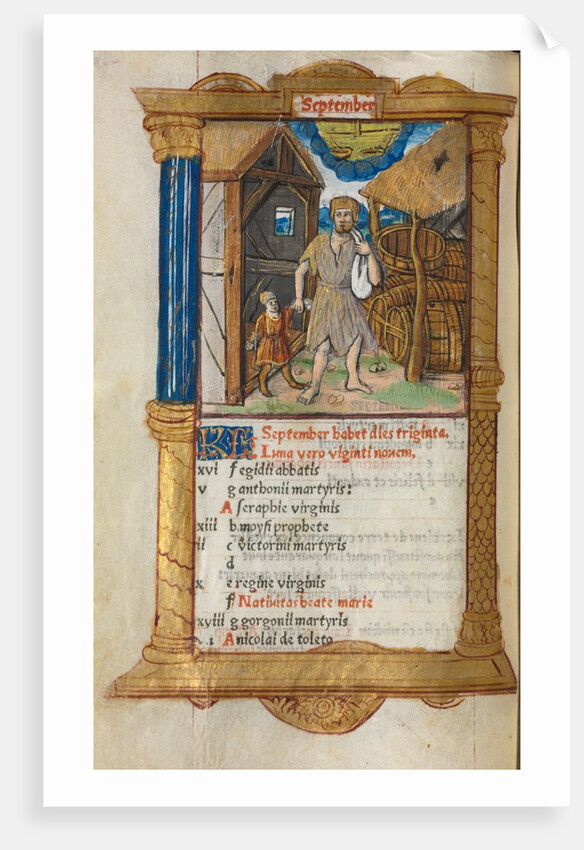 September
KL September habet dies triginta.
Luna vero viginti novem,
xvi f egidii abbatis
v g anthonii martyris:
A seraphie virginis
xiii b moysi prophete
ii c victorini martyris
d
x e regine virginis
f Nativitas beate marie
xviii g gorgonii martyris
A nicolai de toleto